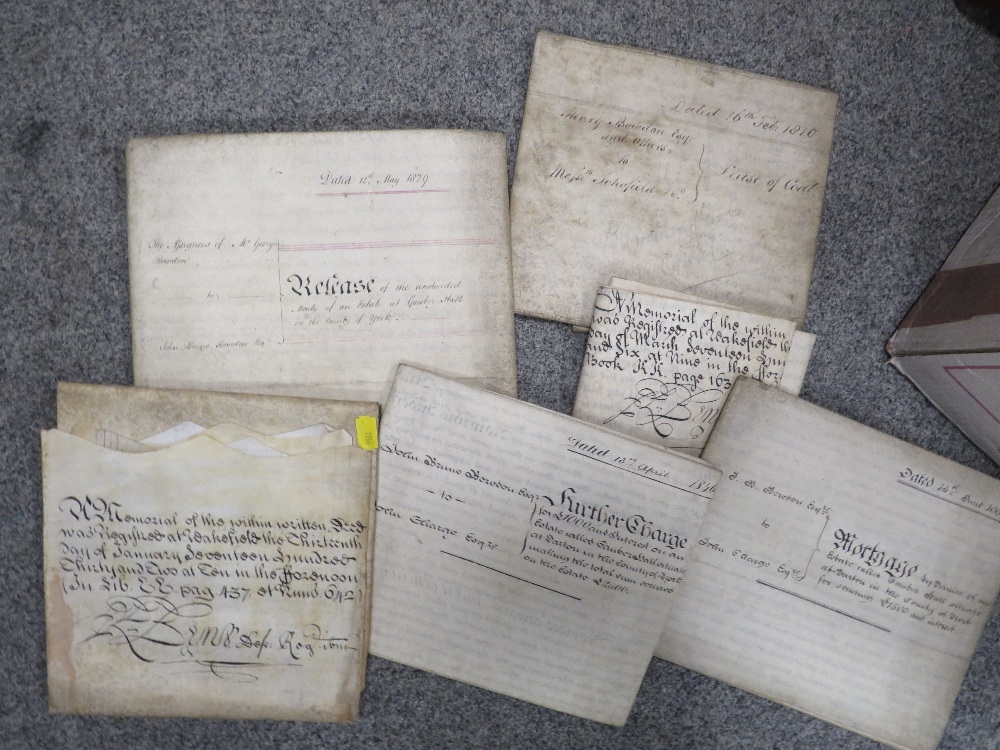 Dated 16th Feb 1810
Henry Bowdon Esqr
and others
to
Messrs Schofield & Co.
Lease of Coal
Dated 12th May 1829
The Assignees of Mr George
Bowdon
to
John Bowdon Esqr
Release of the undivided
Moiety of an Estate at Gawber Hall
in the County of York
A Memorial of the within
was Registred at Wakefield th
Day of March Seventeen Hun
and Six at Nine in the ffor
Book KK page 163
A Memorial of the within written Deed
was Registred at Wakefield the Thirteenth
Day of January Seventeen Hundred
Thirty and Two at Ten in the fforenoon
In Lib. EE. pag 437 et Num. 642
Dep. Regr
Dated 13th April
John Bruno Bowdon Esqr
to
John Charge Esqre
Further Charge
for £1000 and Interest on an
Estate called Gauber Hall situate
at Darton in the County of York
making the total sum secured
on the Estate
Dated
J. B. Bowdon Esqre
to
John Charge Esqre
Mortgage by Demise of an
Estate called Gauber Hall situate
at Darton in the County of York
for securing £1500 and interest